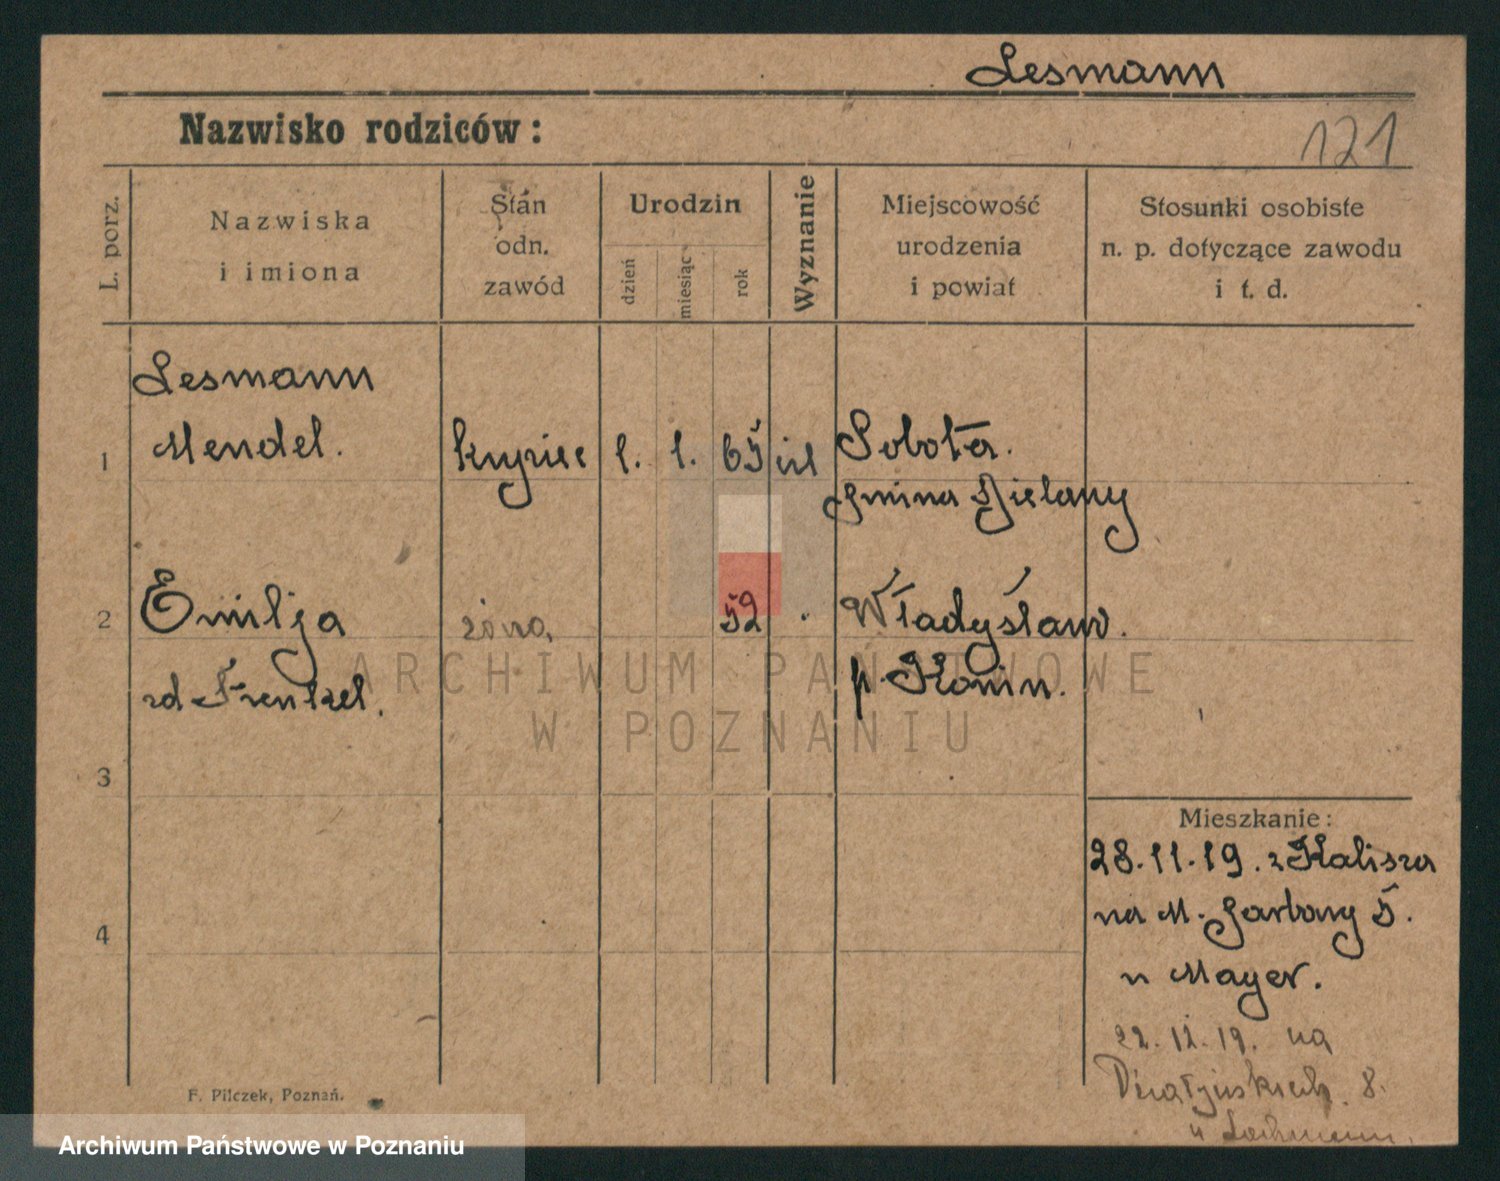 Lesmann
Nazwisko rodziców:
121
L. porz.
Nazwiska
i imiona
Stan
odn.
zawód
Urodzin
dzień
miesiąc
rok
Wyznanie
Miejscowość
urodzenia
i powiat
Stosunki osobiste
n. p. dotyczące zawodu
i t. d.
Lesmann
1 Mendel. kupiec 1. 1. 65 izl Sobota.
gmina Bielany
2 Emilja żona 52 Władysław.
zd Frenkel. p. Konin.
ARCHIWUM PAŃSTWOWE
W POZNANIU
3
4
Mieszkanie:
28.11.19. z Kalisza
na M. Garbary 5.
u Mayer.
22.12.19. na
8.
u
F. Pilczek, Poznań.
Archiwum Państwowe w Poznaniu